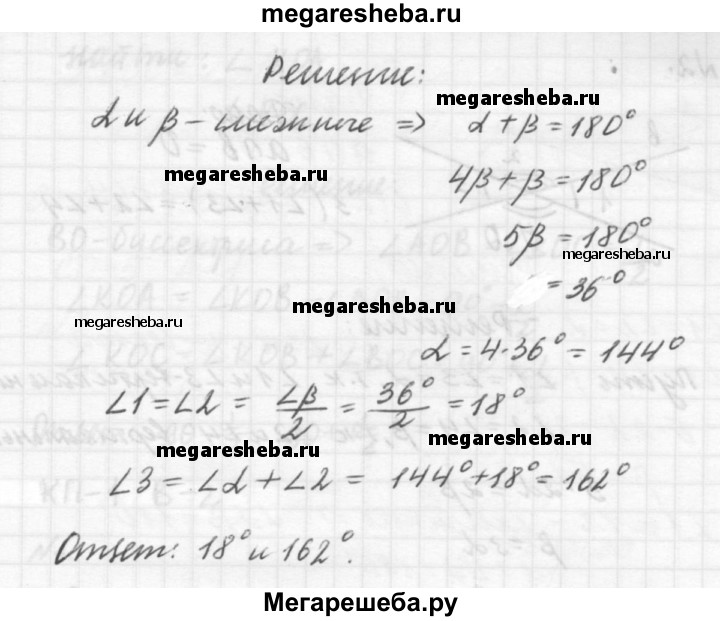 megaresheba.ru
Решение:
megaresheba.ru
α и β – смежные => α + β = 180°
megaresheba.ru
4β + β = 180°
5β = 180°
megaresheba.ru
= 36°
megaresheba.ru
megaresheba.ru
α = 4·36° = 144°
∠1 = ∠2 = ∠β/2 = 36°/2 = 18°
megaresheba.ru
megaresheba.ru
∠3 = ∠α + ∠2 = 144° + 18° = 162°
Ответ: 18° и 162°.
Мегарешеба.ру